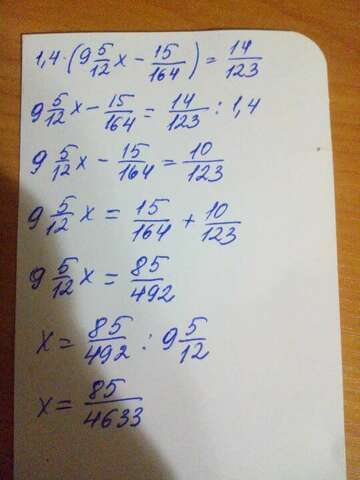 1,4·(9 5/12 x − 15/164) = 14/123
9 5/12 x − 15/164 = 14/123 : 1,4
9 5/12 x − 15/164 = 10/123
9 5/12 x = 15/164 + 10/123
9 5/12 x = 85/492
x = 85/492 : 9 5/12
x = 85/4633